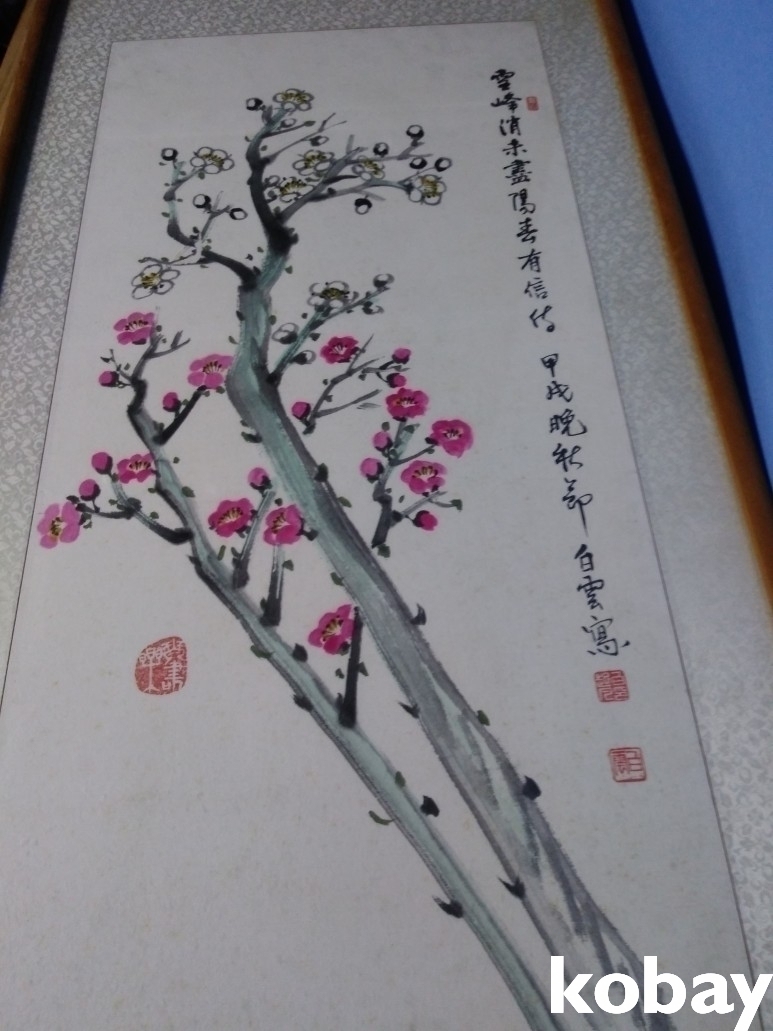 雪峰消未盡陽春有信傳 甲戌晚秋節 白雲寫
白雲
kobay